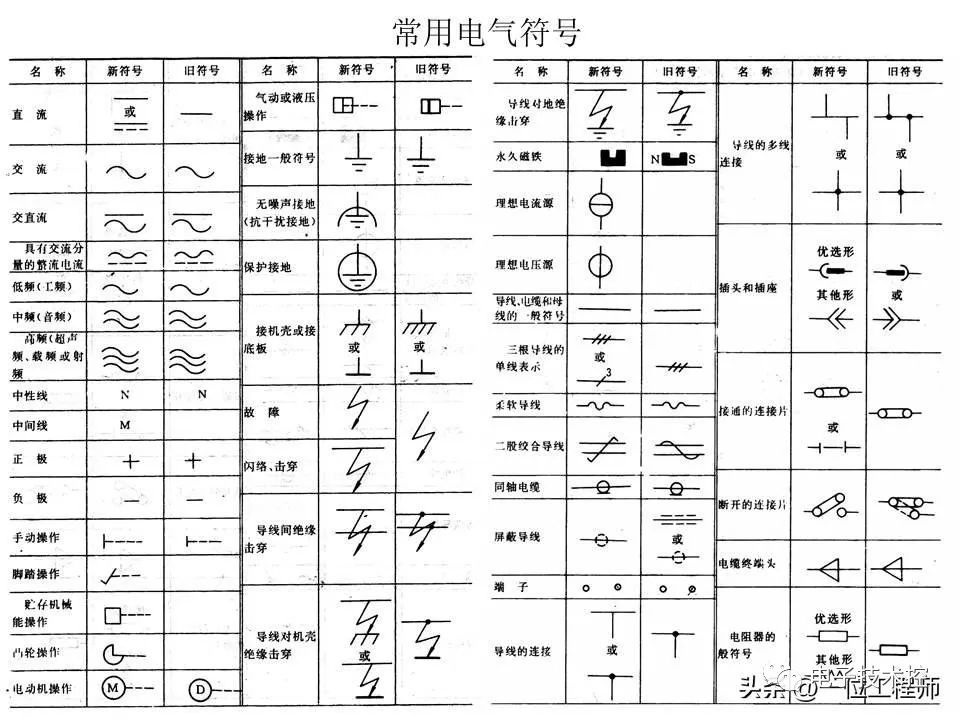 常用电气符号
名 称 新符号 旧符号
直 流
或
交 流
交直流
具有交流分
量的整流电流
低频(工频)
中频(音频)
高频(超声
频、载频或射
频
中性线 N N
中间线 M
正 极
负 极
手动操作
脚踏操作
贮存机械
能操作
凸轮操作
电动机操作 M D
名 称 新符号 旧符号
气动或液压
操作
接地一般符号
无噪声接地
(抗干扰接地)
保护接地
接机壳或接
底板
或 或
故 障
闪络、击穿
导线间绝缘
击穿
导线对机壳
绝缘击穿
或
名 称 新符号 旧符号
导线对地绝
缘击穿
永久磁铁 N S
理想电流源
理想电压源
导线、电缆和母
线的一般符号
三根导线的
单线表示
或
3
柔软导线
二股绞合导线
同轴电缆
屏蔽导线
或
端 子
导线的连接
或
名 称 新符号 旧符号
导线的多线
连接
或 或
插头和插座
优选形
其他形 或
接通的连接片
或
断开的连接片
电缆终端头
电阻器的
般符号
优选形
其他形
电子技术控
头条 @一位工程师